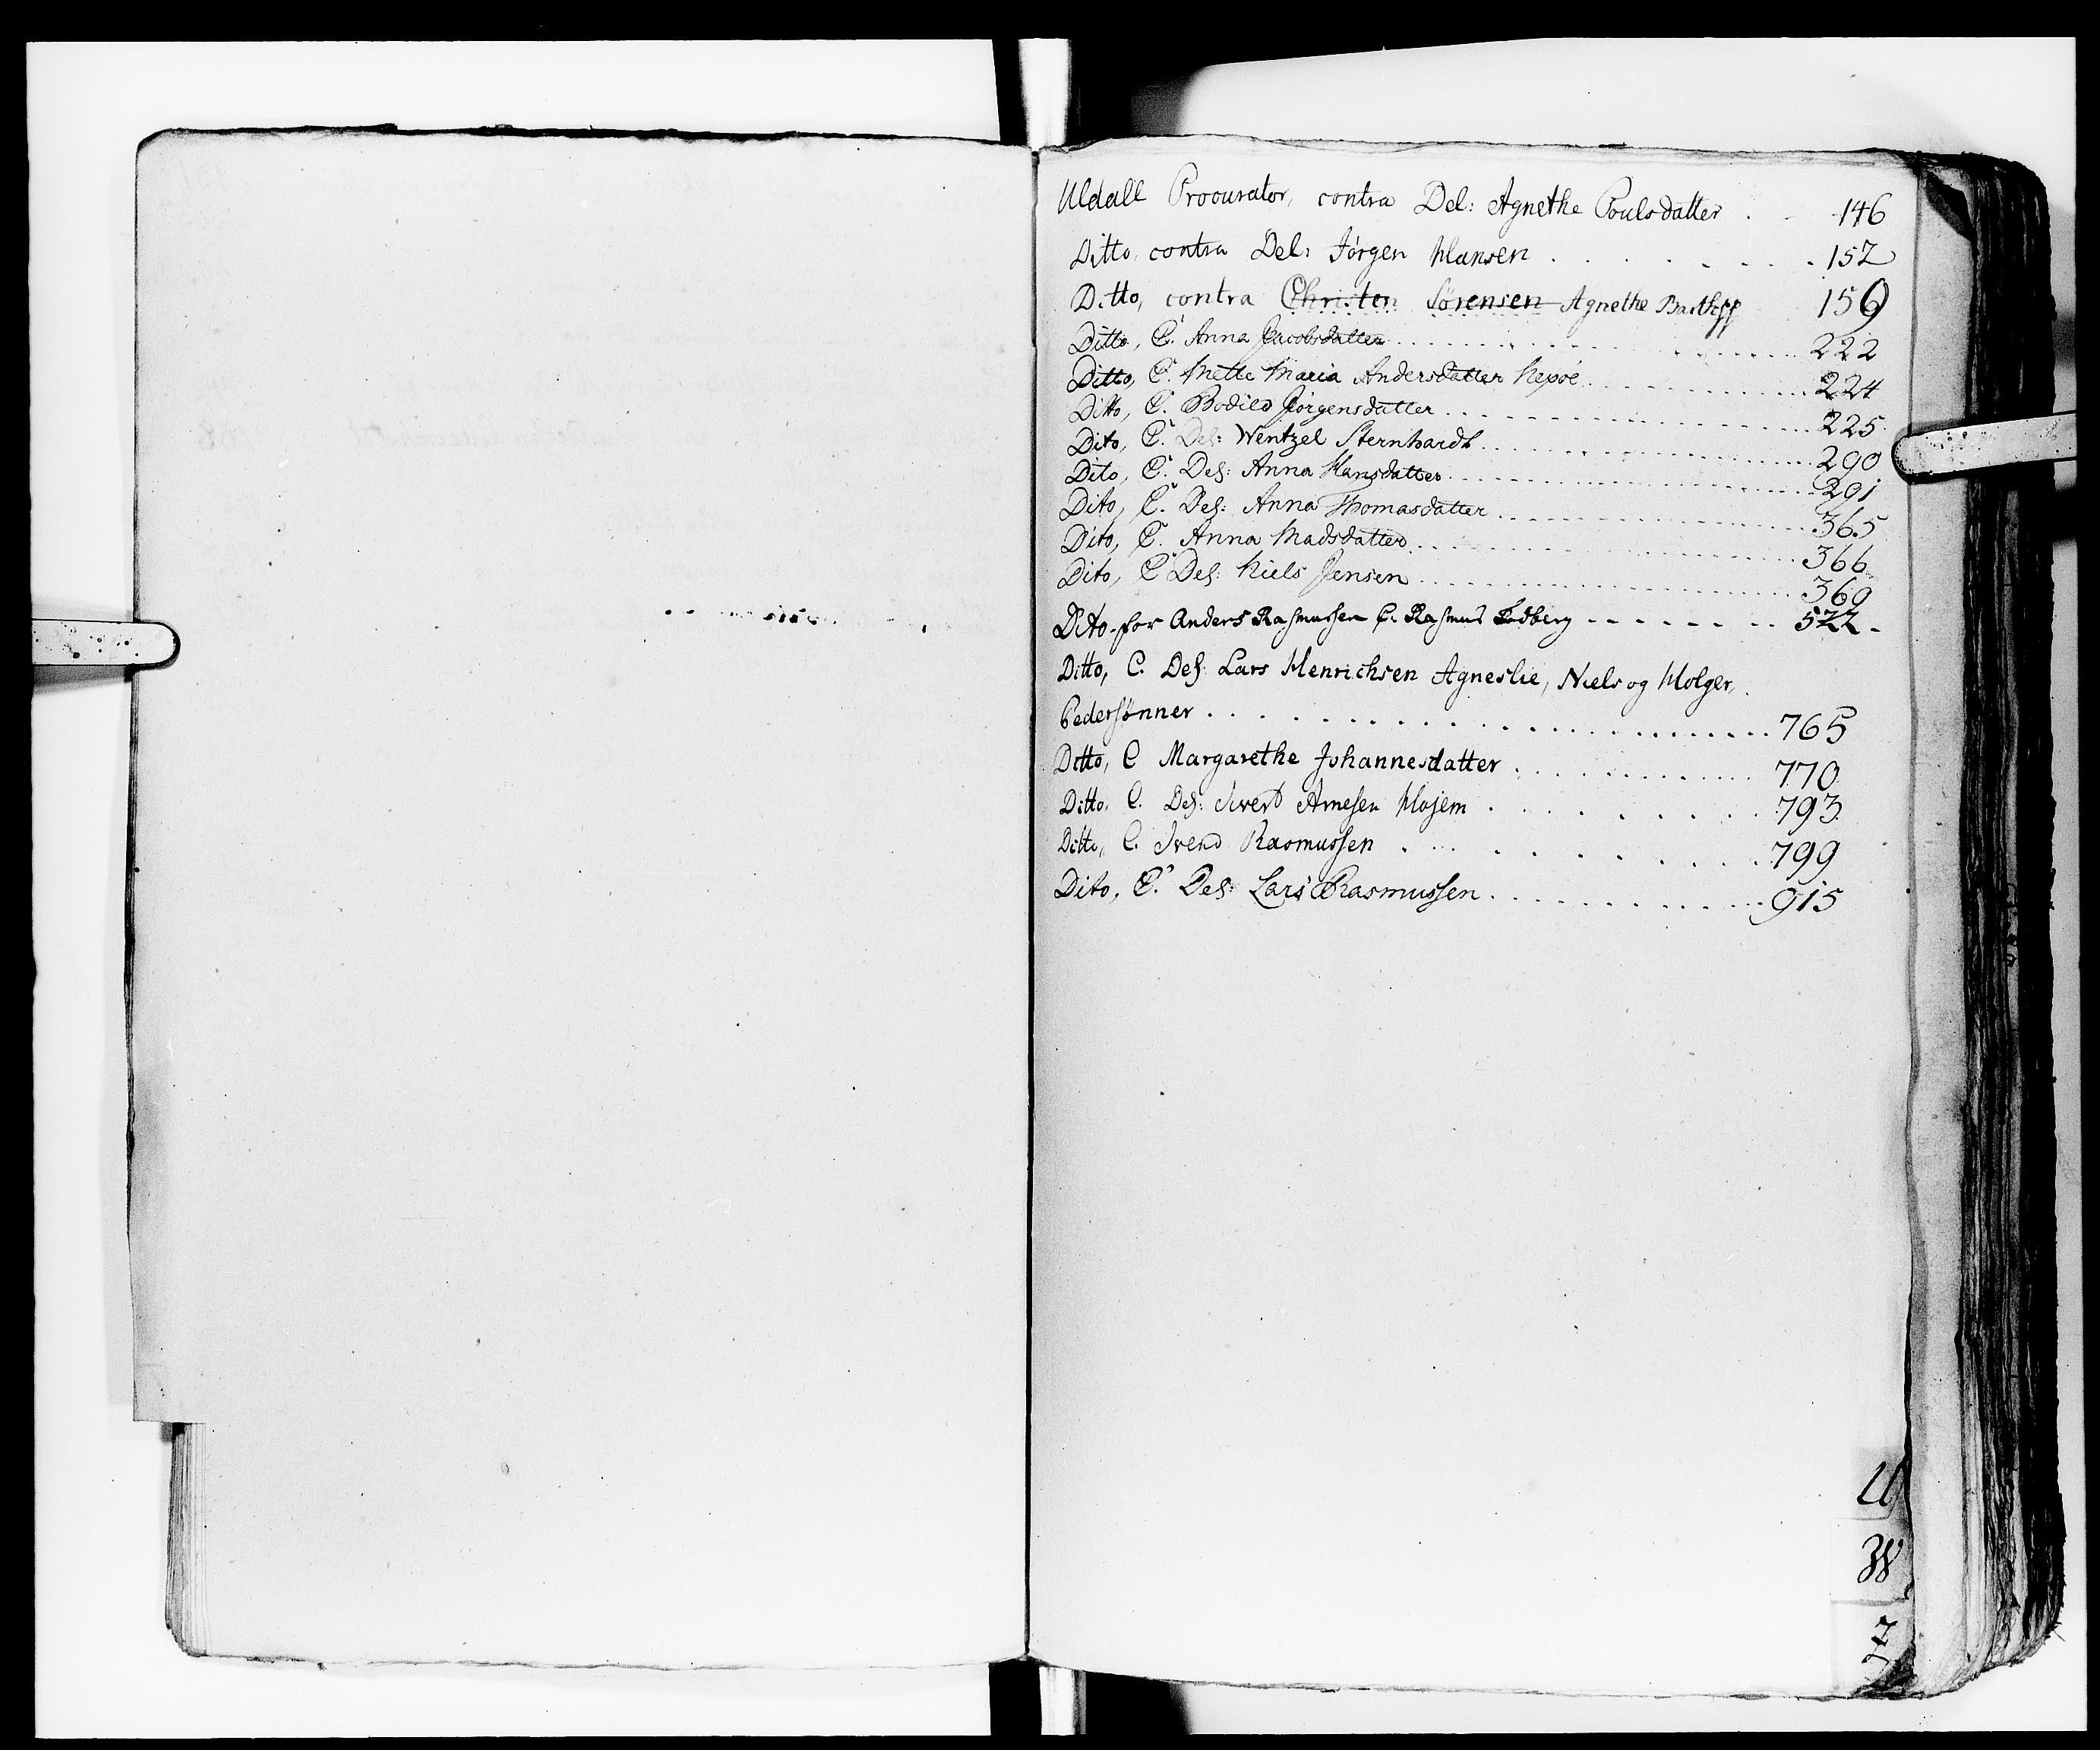 Uldall Procurator, contra Del: Agnethe Poulsdatter . . 146
Ditto, contra Del: Jörgen Hansen . . . . . . 152
Ditto, contra Christen Sörensen Agnethe 159
Ditto, C. Anna Jacobsdatter . . . . . . 222
Ditto, C. Mette Maria Andersdatter . . . . . . 224
Ditto, C. Bodild Jörgensdatter . . . . . . 225
Dito, C. Del: Wentzel Sternhardt . . . . . . 290
Dito, C. Del: Anna Hansdatter . . . . . . 291
Dito, C. Del: Anna Thomasdatter . . . . . . 365
Dito, C. Anna Madsdatter . . . . . . 366
Dito, C. Del: Niels Jensen . . . . . . 369
Dito for Anders Rasmussen C. Rasmus . . . . . . 522
Ditto, C. Del: Lars Henrichsen Agneslie, Niels og Holger,
Pedersönner . . . . . . 765
Ditto, C Margarethe Johannesdatter . . . . . . 770
Ditto, C. Del: Sivert Arnesen . . . . . . 793
Ditto, C. Svend Rasmussen . . . . . . 799
Dito, C. Del: Lars Rasmussen . . . . . . 915
U
W